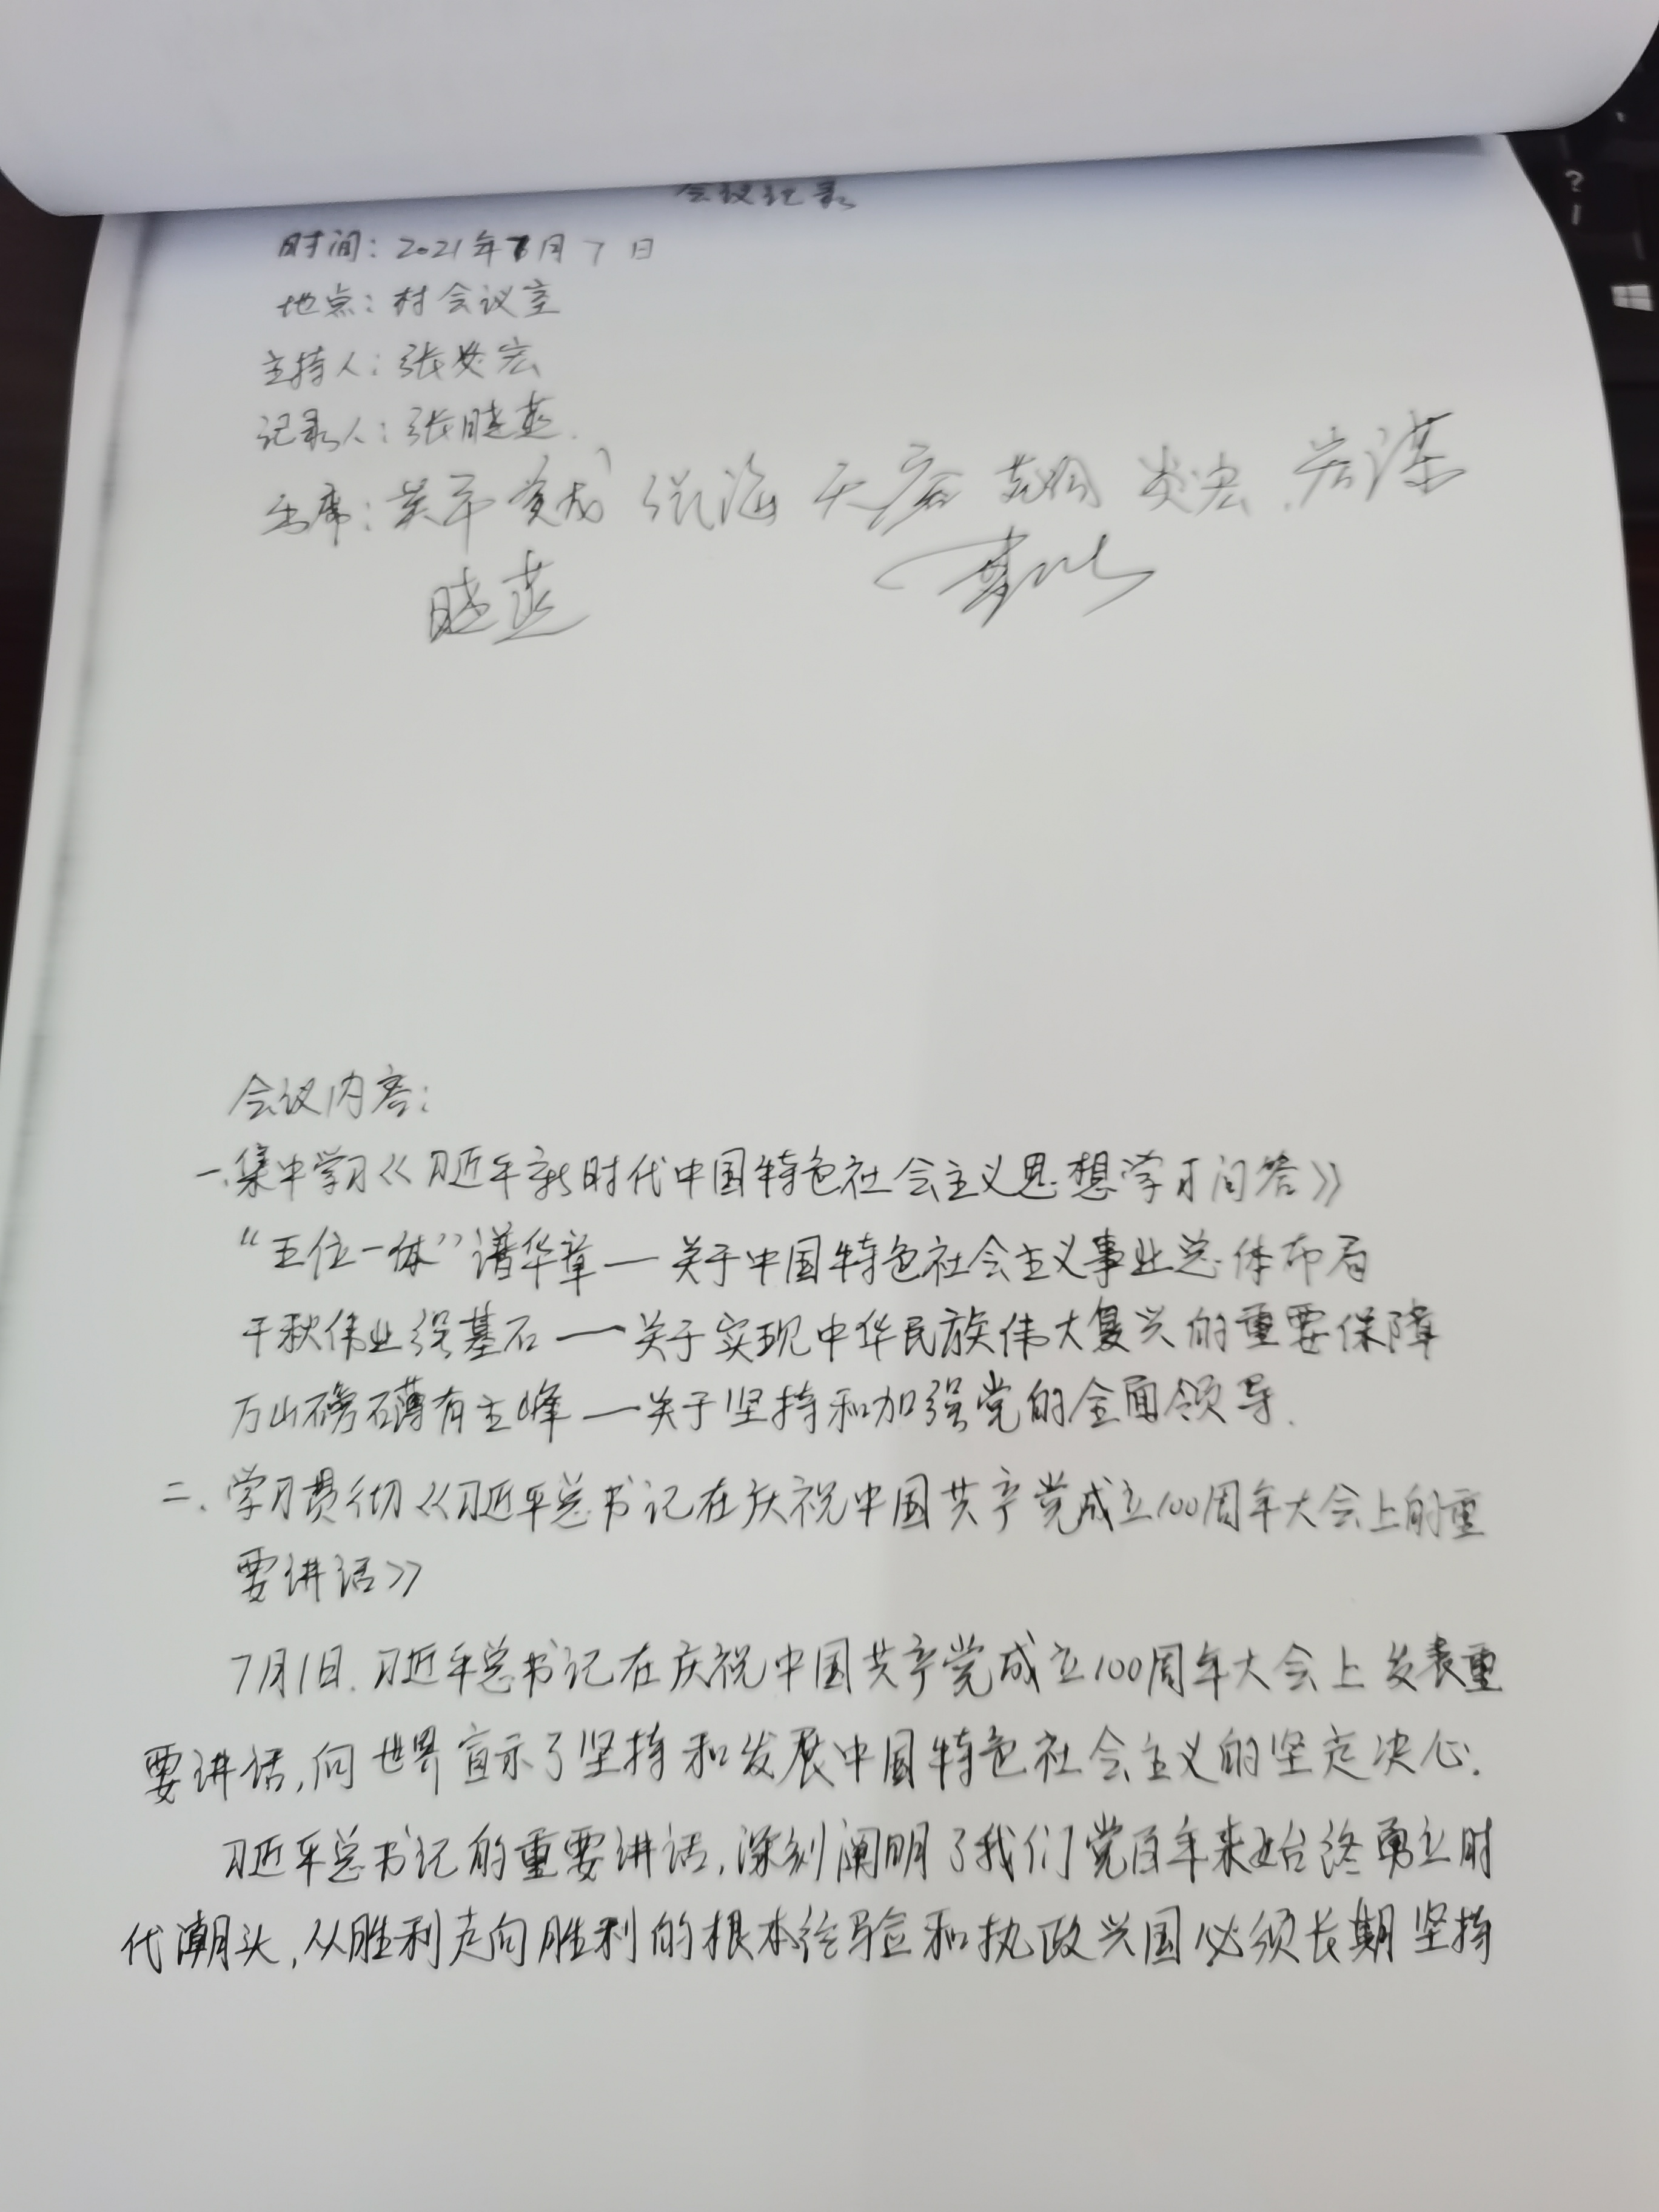 会议记录
时间：2021年8月7日
地点：村会议室
主持人：张炎宏
记录人：张晓燕.
出席：
晓燕
会议内容：
一.集中学习《习近平新时代中国特色社会主义思想学习问答》
“五位一体”谱华章——关于中国特色社会主义事业总体布局
千秋伟业强基石——关于实现中华民族伟大复兴的重要保障
万山磅礴有主峰——关于坚持和加强党的全面领导.
二.学习贯彻《习近平总书记在庆祝中国共产党成立100周年大会上的重
要讲话》
7月1日.习近平总书记在庆祝中国共产党成立100周年大会上发表重
要讲话,向世界宣示了坚持和发展中国特色社会主义的坚定决心.
习近平总书记的重要讲话,深刻阐明了我们党百年来始终勇立时
代潮头,从胜利走向胜利的根本经验和执政兴国必须长期坚持